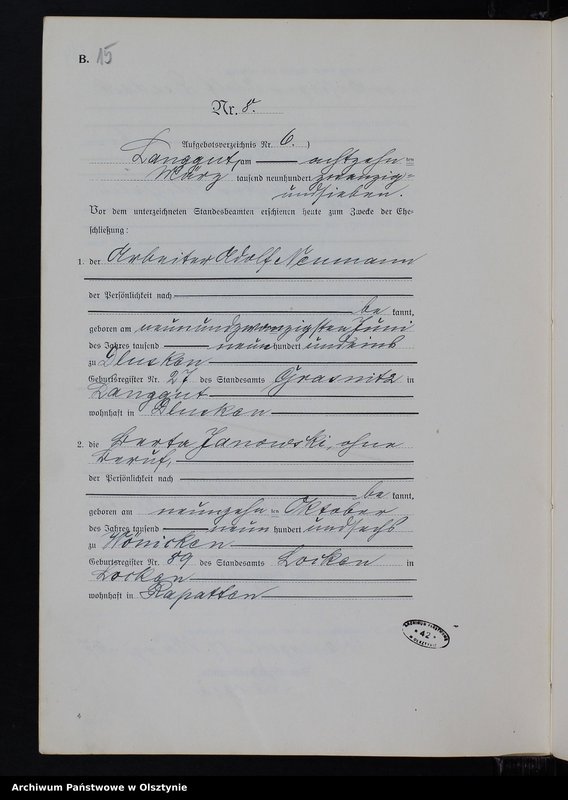 B. 15
Nr. 8.
Aufgebotsverzeichnis Nr. 6.)
Langgut, am achtzehnten
März tausend neunhundert zwanzig=
undsieben.
Vor dem unterzeichneten Standesbeamten erschienen heute zum Zwecke der Ehe-
schließung:
1. der Arbeiter Adolf Neumann
der Persönlichkeit nach
be kannt,
geboren am neunundzwanzigsten Juni
des Jahres tausend neun hundert undeins
zu
Geburtsregister Nr. 27 des Standesamts Grasnitz in
Langgut
wohnhaft in
2. die Berta Janowski, ohne
Beruf,
der Persönlichkeit nach
be kannt,
geboren am neunzehn ten Oktober
des Jahres tausend neun hundert undsechs
zu Wönicken
Geburtsregister Nr. 89 des Standesamts Locken in
Locken
wohnhaft in Rapatten
42
4
Archiwum Państwowe w Olsztynie